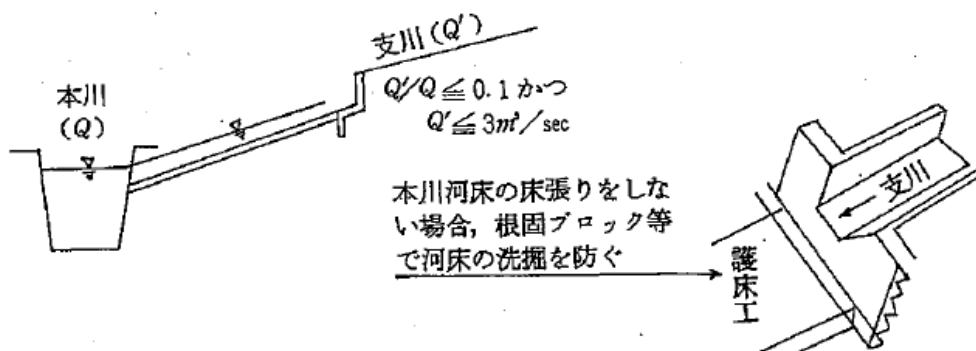 支川(Q′)
本川
(Q)
Q′/Q≦0.1かつ
Q′≦3m³/sec
本川河床の床張りをしな
い場合,根固ブロック等
で河床の洗掘を防ぐ
支川
護床工